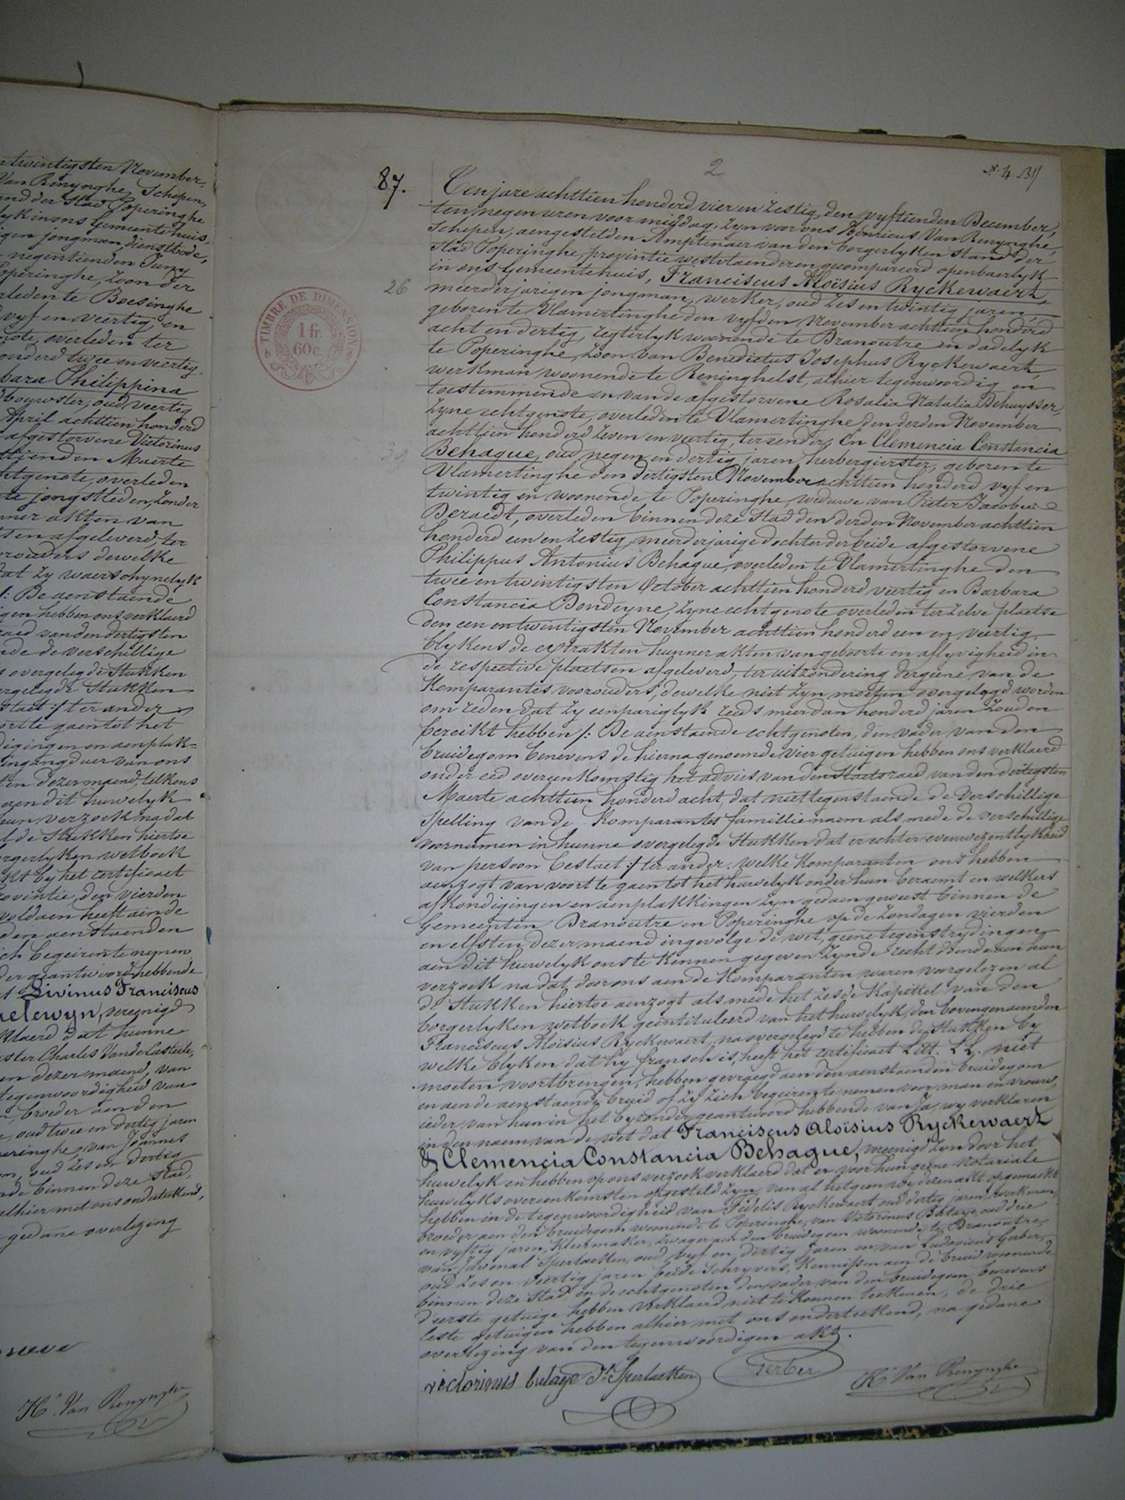 n twintigsten November,
Van Renynghe, Schepen,
and der Stad Poperinghe
lyk in ons Gemeentehuis,
igen jongman, dienstbode,
negentienden Juny
operinghe, zoon der
rleden te Boesinghe
vyf en veertig, en
note, overleden ter
onderd twee en veertig
bara Philippina
dbouwster, oud veertig
April achttien honderd
afgestorvene Victorinus
ttienden Maerte
htgenote, overleden
te jongstleden, zonder
nner akten van
sen afgeleverd, ter
rouders dewelke
dat zy waerschynelyk
/: De aenstaende
igen hebben ons verklaerd
raed van den dertigsten
nde de verschillige
s overgelegde Stukken
rgelegde Stukken
staet :/ ter ander
oort te gaen tot het
digingen en aenplak=
ingang deur van ons
en dezer maend, telkens
gen dit huwelyk
eun verzoek, na dat
l de Stukken hiertoe
rgerlyken wetboek
dat by het certificaet
rovintie, den vierden
voldaen heeft aen de
den aenstaenden
ich begeeren te nemen
der geantwoord hebbende
Livinus Franciscus
helewyn, vereenigd
klaerd dat hunne
ster Charles Vande Casteele,
en dezer maend, van
tegenwoordigheid van
broeder aen den
, oud twee en dertig jaren
peringhe, van Joannes
en, oud zes en dertig
de binnen deze Stad,
alhier met ons onderteekend,
gedane overlezing
H.i Van Renynghe
2
N. 4. 139
87.
Ten jare achttien honderd vier en zestig, den vyftienden December,
ten negen uren voormiddag, zyn voor ons Henricus Van Renynghe,
Schepen, aengestelden Amptenaer van den borgerlyken stand der
Stad Poperinghe, provintie westvlaenderen, gecompareerd openbaerlyk
in ons Gemeentehuis, Franciscus Aloisius Ryckewaert,
26
meerderjarigen jongman, werker, oud zes en twintig jaren,
geboren te Vlamertinghe den vyfden November achttien honderd
acht en dertig, regterlyk woonende te Dranoutre en dadelyk
te Poperinghe, zoon van Benedictus Josephus Ryckewaert,
werkman, woonende te Reninghelst, alhier tegenwoordig en
toestemmende en van de afgestorvene Rosalia Natalia Dehuysser,
zyne echtgenote, overleden te Vlamertinghe den derden November
achttien honderd zeven en veertig, ter eender; En Clemencia Constancia
39
Behague, oud negen en dertig jaren, herbergierster, geboren te
Vlamertinghe den dertigsten November achttien honderd vyf en
twintig en woonende te Poperinghe, weduwe van Pieter Jacobus
Deraedt, overleden binnen deze Stad den derden November achttien
honderd een en zestig, meerderjarige dochter der beide afgestorvene
Philippus Antonius Behague, overleden te Vlamertinghe den
twee en twintigsten October achttien honderd veertig en Barbara
Constancia Bondeyne, zyne echtgenote, overleden ter zelve plaetse
den een en twintigsten November achttien honderd een en veertig,
blykens de extrakten hunner akten van geboorte en aflyvigheid in
de respective plaetsen afgeleverd, ter uitzondering dergene van de
Komparantes voorouders, dewelke niet zyn moeten overgelegd worden
om reden dat zy eenpariglyk reeds meer dan honderd jaren zouden
bereikt hebben /: De aenstaende echtgenoten, den vader van den
bruidegom benevens de hierna genoemde vier getuigen hebben ons verklaerd
onder eed overeenkomstig het advies van den Staetsraed van den dertigsten
Maerte achttien honderd acht, dat niettegenstaende de verschillige
spelling van de Komparantes familienaem als mede de verschillige
voornamen in hunne overgelegde Stukken dat er echter eenwezentlykheid
van persoon bestaet :/ ter ander. welke Komparanten ons hebben
aenzogt van voort te gaen tot het huwelyk onder hun beraemt en welkers
afkondigingen en aenplakkingen zyn gedaen geweest binnen de
Gemeenten Dranoutre en Poperinghe op de zondagen vierden
en elfsten dezer maend ingevolge de wet, geene tegenstrydingen
aen dit huwelyk ons te kennen gegeven zynde, recht doende aen hun
verzoek, na dat door ons aen de Komparanten waren voorgelezen al
de Stukken hiertoe aenzogt als mede het zesde Kapittel van den
borgerlyken wetboek geintituleerd van het huwelyk, den bovengenoemden
Franciscus Aloisius Ryckewaert, na overgelegd te hebben de Stukken by
welke blyken dat hy fransch is, heeft het certificaet Litt. LL. niet
moeten voortbrengen, hebben gevraegd aen den aenstaenden bruidegom
en aen de aenstaende bruid of zy zich begeeren te nemen voor man en vrouw,
ieder van hun in het byzonder geantwoord hebbende van Ja, wy verklaren
in den naem van de wet dat Franciscus Aloisius Ryckewaert
& Clemencia Constancia Behague, vereenigd zyn door het
huwelyk en hebben op ons verzoek verklaerd dat er voor hun geene notariale
huwelyks overeenkomsten opgesteld zyn, van al hetgene wy deze akt opgemaekt
hebben in de tegenwoordigheid van Fidelis Ryckewaert, oud dertig jaren, werkman,
broeder aen den bruidegom, woonende te Poperinghe, van Victorinus Belage, oud drie
en vyftig jaren, kleermaker, zwager aen den bruidegom, woonende te Dranoutre,
van Juvenal Sperlaeken, oud vyf en dertig jaren en van Ludovicus Gerber,
oud zes en veertig jaren, beide Schryvers, Kennissen aen de bruid, woonende
binnen deze Stad, en de echtgenoten, den vader van den bruidegom benevens
d'eerste getuige hebben verklaerd niet te konnen teekenen, de drie
leste getuigen hebben alhier met ons onderteekend, na gedane
overlezing van den tegenwoordigen akt.
victorinus belage J.l Sperlaeken Gerber H.i Van Renynghe
TIMBRE DE DIMENSION
16
60c.